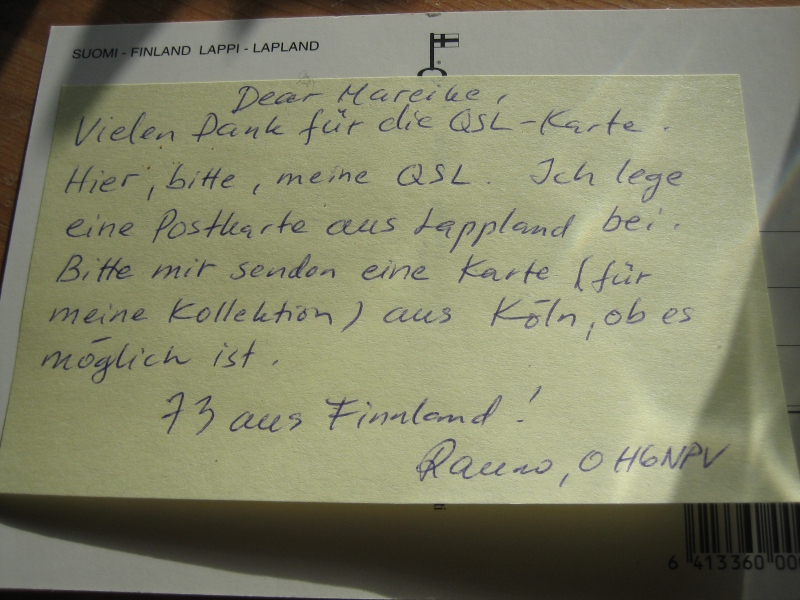 SUOMI - FINLAND LAPPI - LAPLAND
Dear Mareike,
Vielen Dank für die QSL-Karte.
Hier, bitte, meine QSL. Ich lege
eine Postkarte aus Lappland bei.
Bitte mir senden eine Karte (für
meine Kollektion) aus Köln, ob es
möglich ist.
73 aus Finnland!
Rauno, OH6NPV
6 413360 00